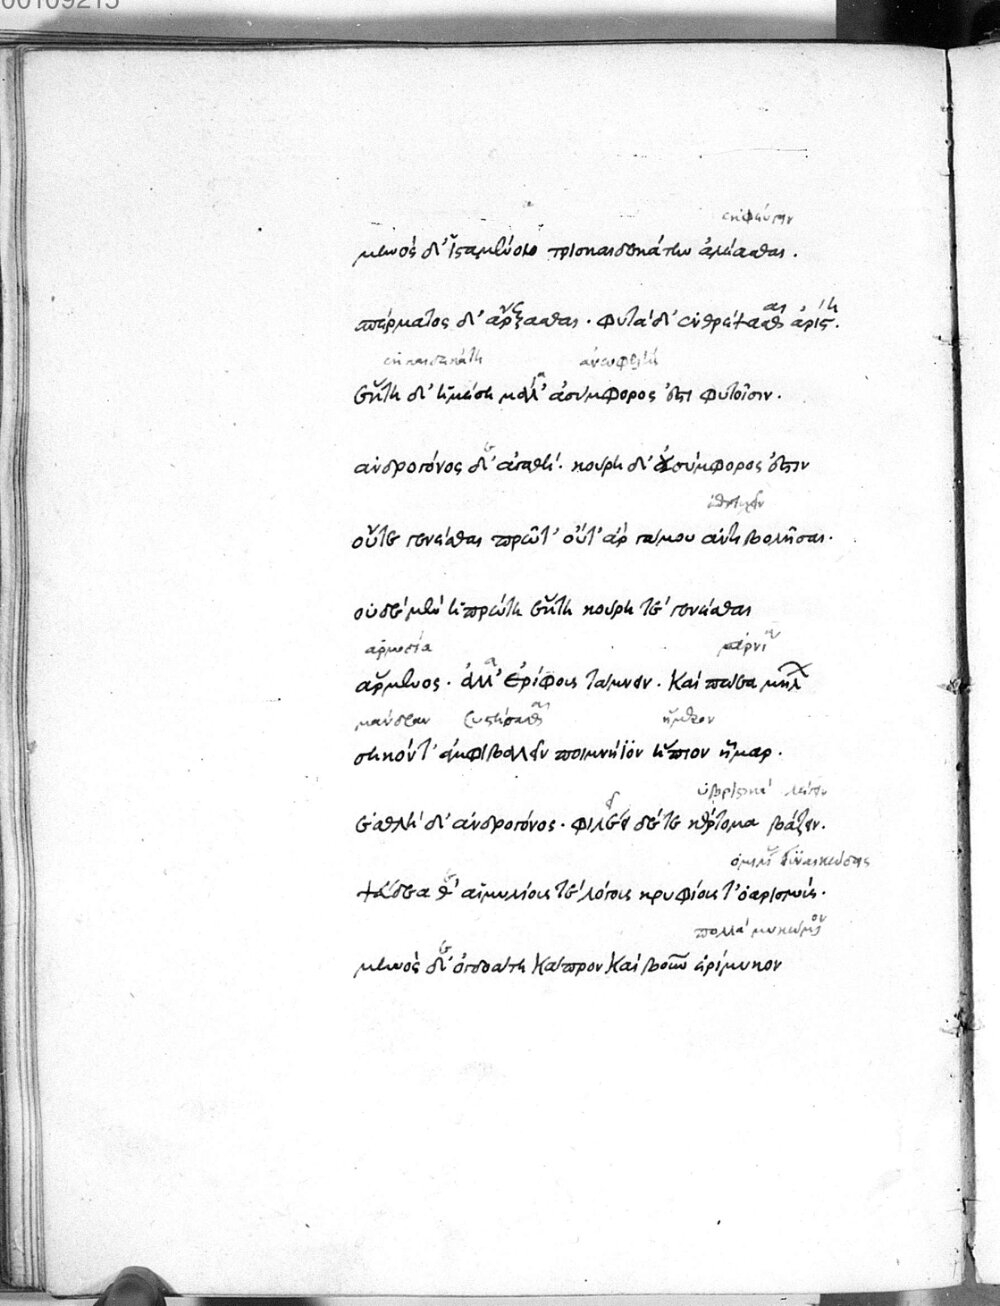 00109215
ἐκφεύγειν
μηνὸς δ' ἱσταμένοιο τρισκαιδεκάτην ἀλέασθαι.
σπέρματος δ' ἄρξασθαι. φυτὰ δ' ἐνθρέψασθαι ἀρίστη.
ἑκκαιδεκάτη ἀνωφελὴς
ἕκτη δ' ἡ μέση μάλ' ἀσύμφορος ἐστι φυτοῖσιν.
ἀνδρογόνος δ' ἀγαθή. κούρη δ' ἀσύμφορος ἐστιν
οὔτε γενέσθαι πρῶτ' οὔτ' ἂρ γάμου ἀντιβολῆσαι.
οὐδὲ μὲν ἡ πρώτη ἕκτη κούρη τε γενέσθαι
ἁρμοδία
ἄρμενος. ἀλλ' ἐρίφοις τάμνειν. καὶ πώεα μήλων
μάνδραν ἥμερον
σηκόν τ' ἀμφιβαλεῖν ποιμνήϊον ἤπιον ἦμαρ.
ὑβριστικὰ λέγειν
ἐσθλὴ δ' ἀνδρογόνος. φιλέει δέ τε κέρτομα βάζειν.
ψεύδεα θ' αἱμυλίους τε λόγους κρυφίους τ' ὀαρισμούς.
πολλὰ μυκώμενον
μηνὸς δ' ὀγδοάτη κάπρον καὶ βοῦν ἐρίμυκον